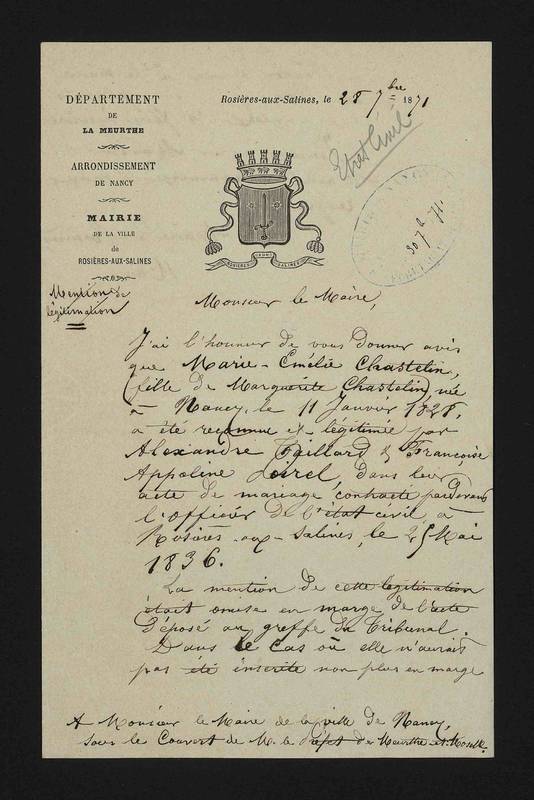 DÉPARTEMENT
DE
LA MEURTHE
ARRONDISSEMENT
DE NANCY
MAIRIE
DE LA VILLE
de
ROSIÈRES-AUX-SALINES
Rosières-aux-Salines, le 28 7bre 1871
Etat Civil
30 7b 71.
ROSIÈRES AUX SALINES
Mention de
légitimation
Monsieur le Maire,
J'ai l'honneur de vous donner avis
que Marie-Emélie Chastelin,
(fille de Marguerite Chastelin) née
à Nancy, le 11 Janvier 1828,
a été reconnue et légitimée par
Alexandre Gaillard & Françoise
Appoline Loirel, dans leur
acte de mariage, contracté pardevant
l'officier de l'état civil, à
Rosières-aux-Salines, le 25 Mai
1836.
La mention de cette légitimation
était omise en marge de l'acte
déposé au greffe du Tribunal.
Dans le cas où elle n'aurait
pas été inscrite non plus en marge
A Monsieur le Maire de la ville de Nancy,
sous le Couvert de M. le Préfet de Meurthe-et-Moselle.